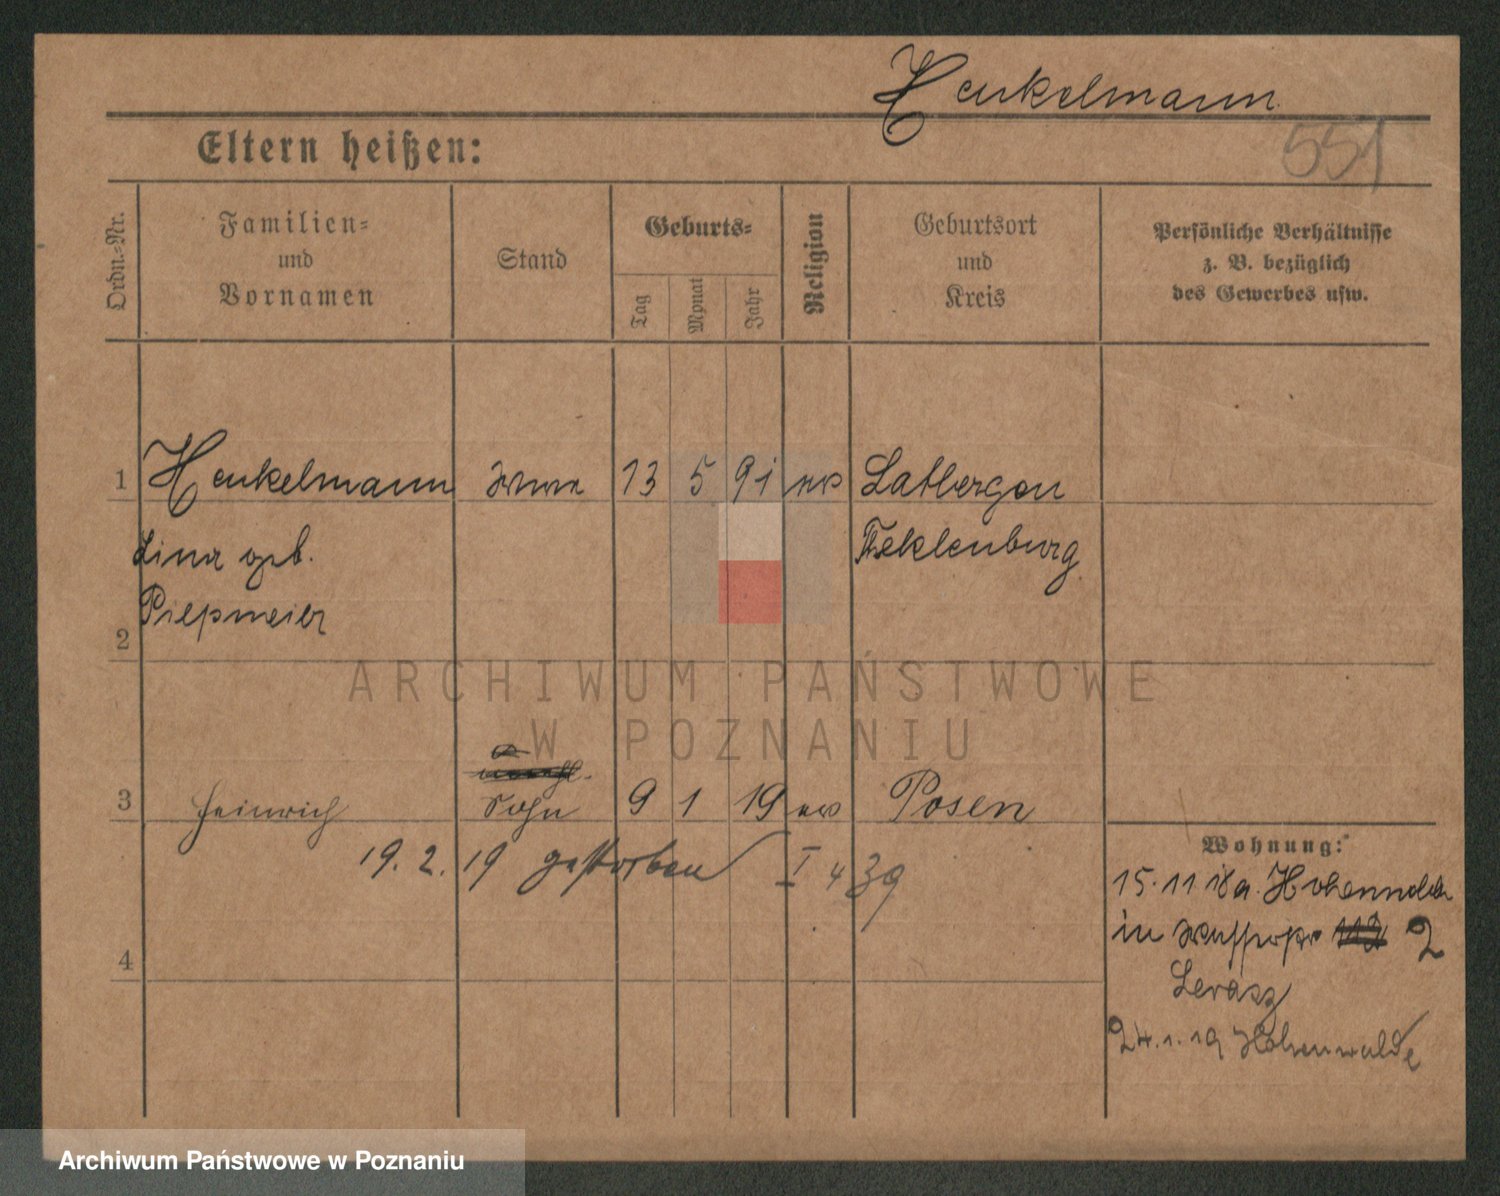 Henkelmann
551
Eltern heißen:
Ordn.-Nr.
Familien-
und
Vornamen
Stand
Geburts-
Tag
Monat
Jahr
Religion
Geburtsort
und
Kreis
Persönliche Verhältnisse
z. B. bezüglich
des Gewerbes usw.
1 Henkelmann Wwe 13 5 91 ev Latbergen
Lina geb. Teklenburg
Piepmeier
2
3 Heinrich Sohn 9 1 19 ev Posen
19. 2. 19 gestorben I 4 39
4
Wohnung:
15. 11 18 a. Hohenwalde
in 2
Lerasz
24. 1. 19 Hohenwalde
ARCHIWUM PAŃSTWOWE
W POZNANIU
Archiwum Państwowe w Poznaniu